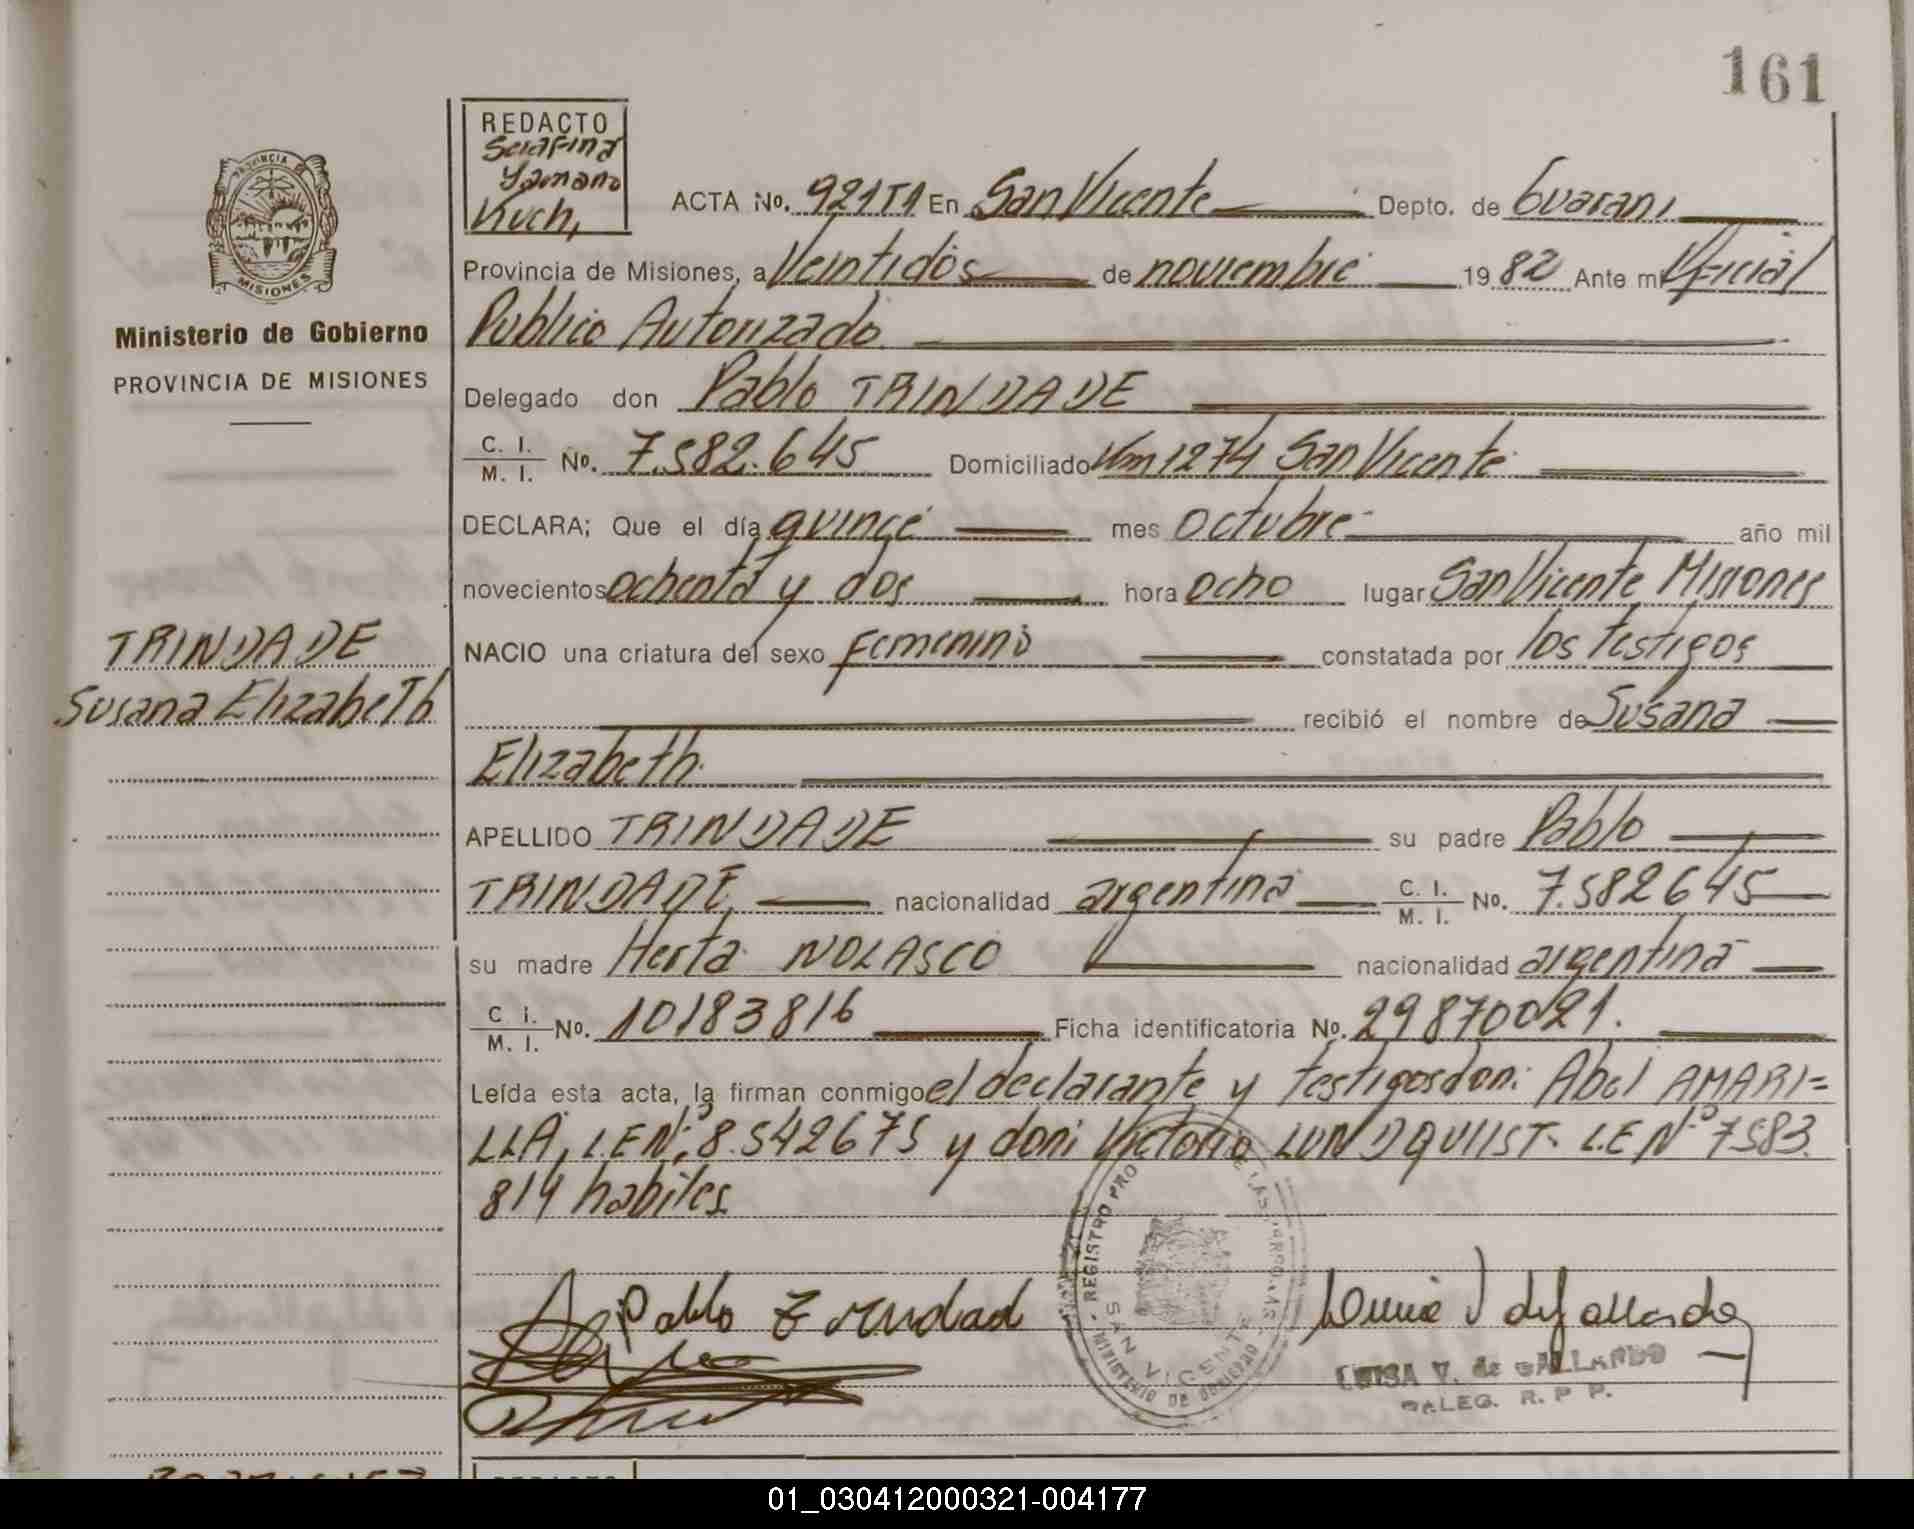 161
REDACTO
Serafina
Yamano
Kuch,
PROVINCIA
MISIONES
Ministerio de Gobierno
PROVINCIA DE MISIONES
ACTA No. 921T1 En San Vicente Depto. de Guarani
Provincia de Misiones, a Veintidós de noviembre 1982 Ante mi Oficial
Publico Autorizado
Delegado don Pablo TRINDADE
C. I. M. I. No. 7.582.645 Domiciliado Km 1274 San Vicente
DECLARA; Que el día quince mes octubre año mil
novecientos ochenta y dos hora ocho lugar San Vicente Misiones
TRINDADE
Susana Elizabeth
NACIO una criatura del sexo femenino constatada por los testigos
recibió el nombre de Susana
Elizabeth.
APELLIDO TRINDADE su padre Pablo
TRINDADE, nacionalidad argentina C. I. M. I. No. 7.582645
su madre Herta NOLASCO nacionalidad argentina
C i. M. I. No. 10183816 Ficha identificatoria No. 29870021.
Leída esta acta, la firman conmigo el declarante y testigos don: Abel AMARI=
LLA, L.E Nº: 8.542675 y don: Victorio LUNDQUIST L.E Nº 7583.
814 habiles
Pablo Trindad
REGISTRO PRO DE LAS PERSONAS
SAN VICENTE
MINISTERIO DE GOBIERNO
Luisa V de Gallardo
LUISA V. de GALLARDO
DALEG. R. P P.
REDACTO
01_030412000321-004177